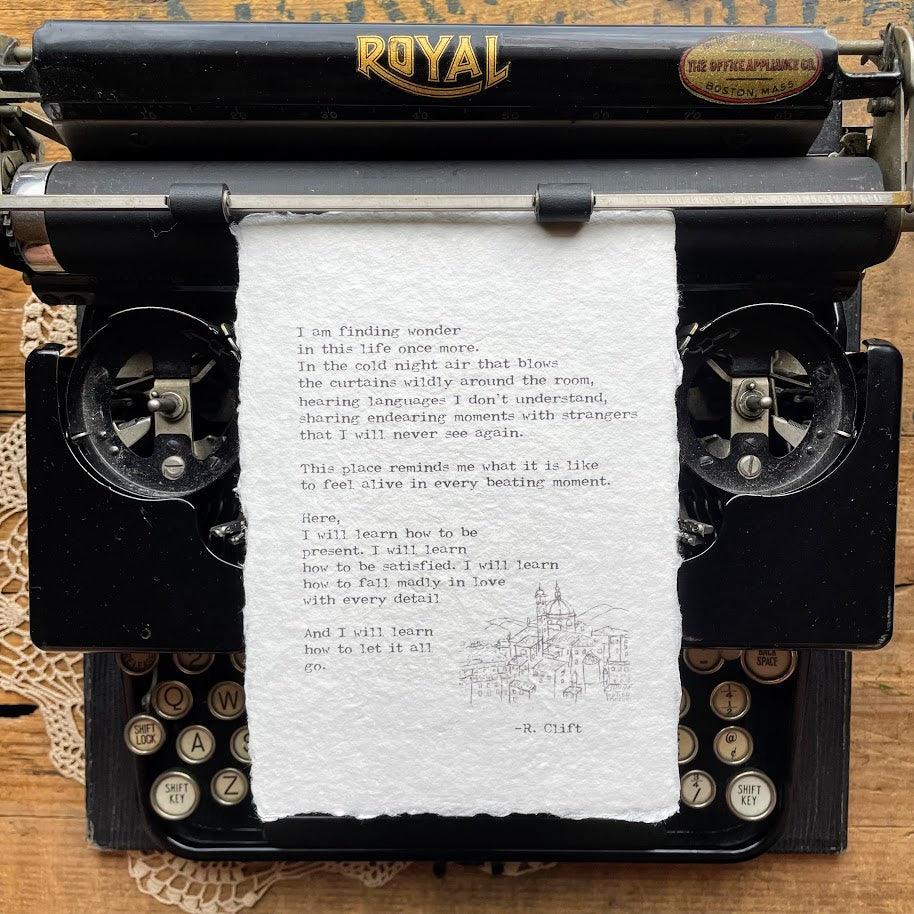 ROYAL
THE OFFICE APPLIANCE CO.
BOSTON, MASS.
10 20 30 40 50 70 80
I am finding wonder
in this life once more.
In the cold night air that blows
the curtains wildly around the room,
hearing languages I don't understand,
sharing endearing moments with strangers
that I will never see again.
This place reminds me what it is like
to feel alive in every beating moment.
Here,
I will learn how to be
present. I will learn
how to be satisfied. I will learn
how to fall madly in love
with every detail
And I will learn
how to let it all
go.
-R. Clift
2 - BACK SPACE
Q W ¼ ½
SHIFT LOCK A S @ ¢
SHIFT KEY Z SHIFT KEY